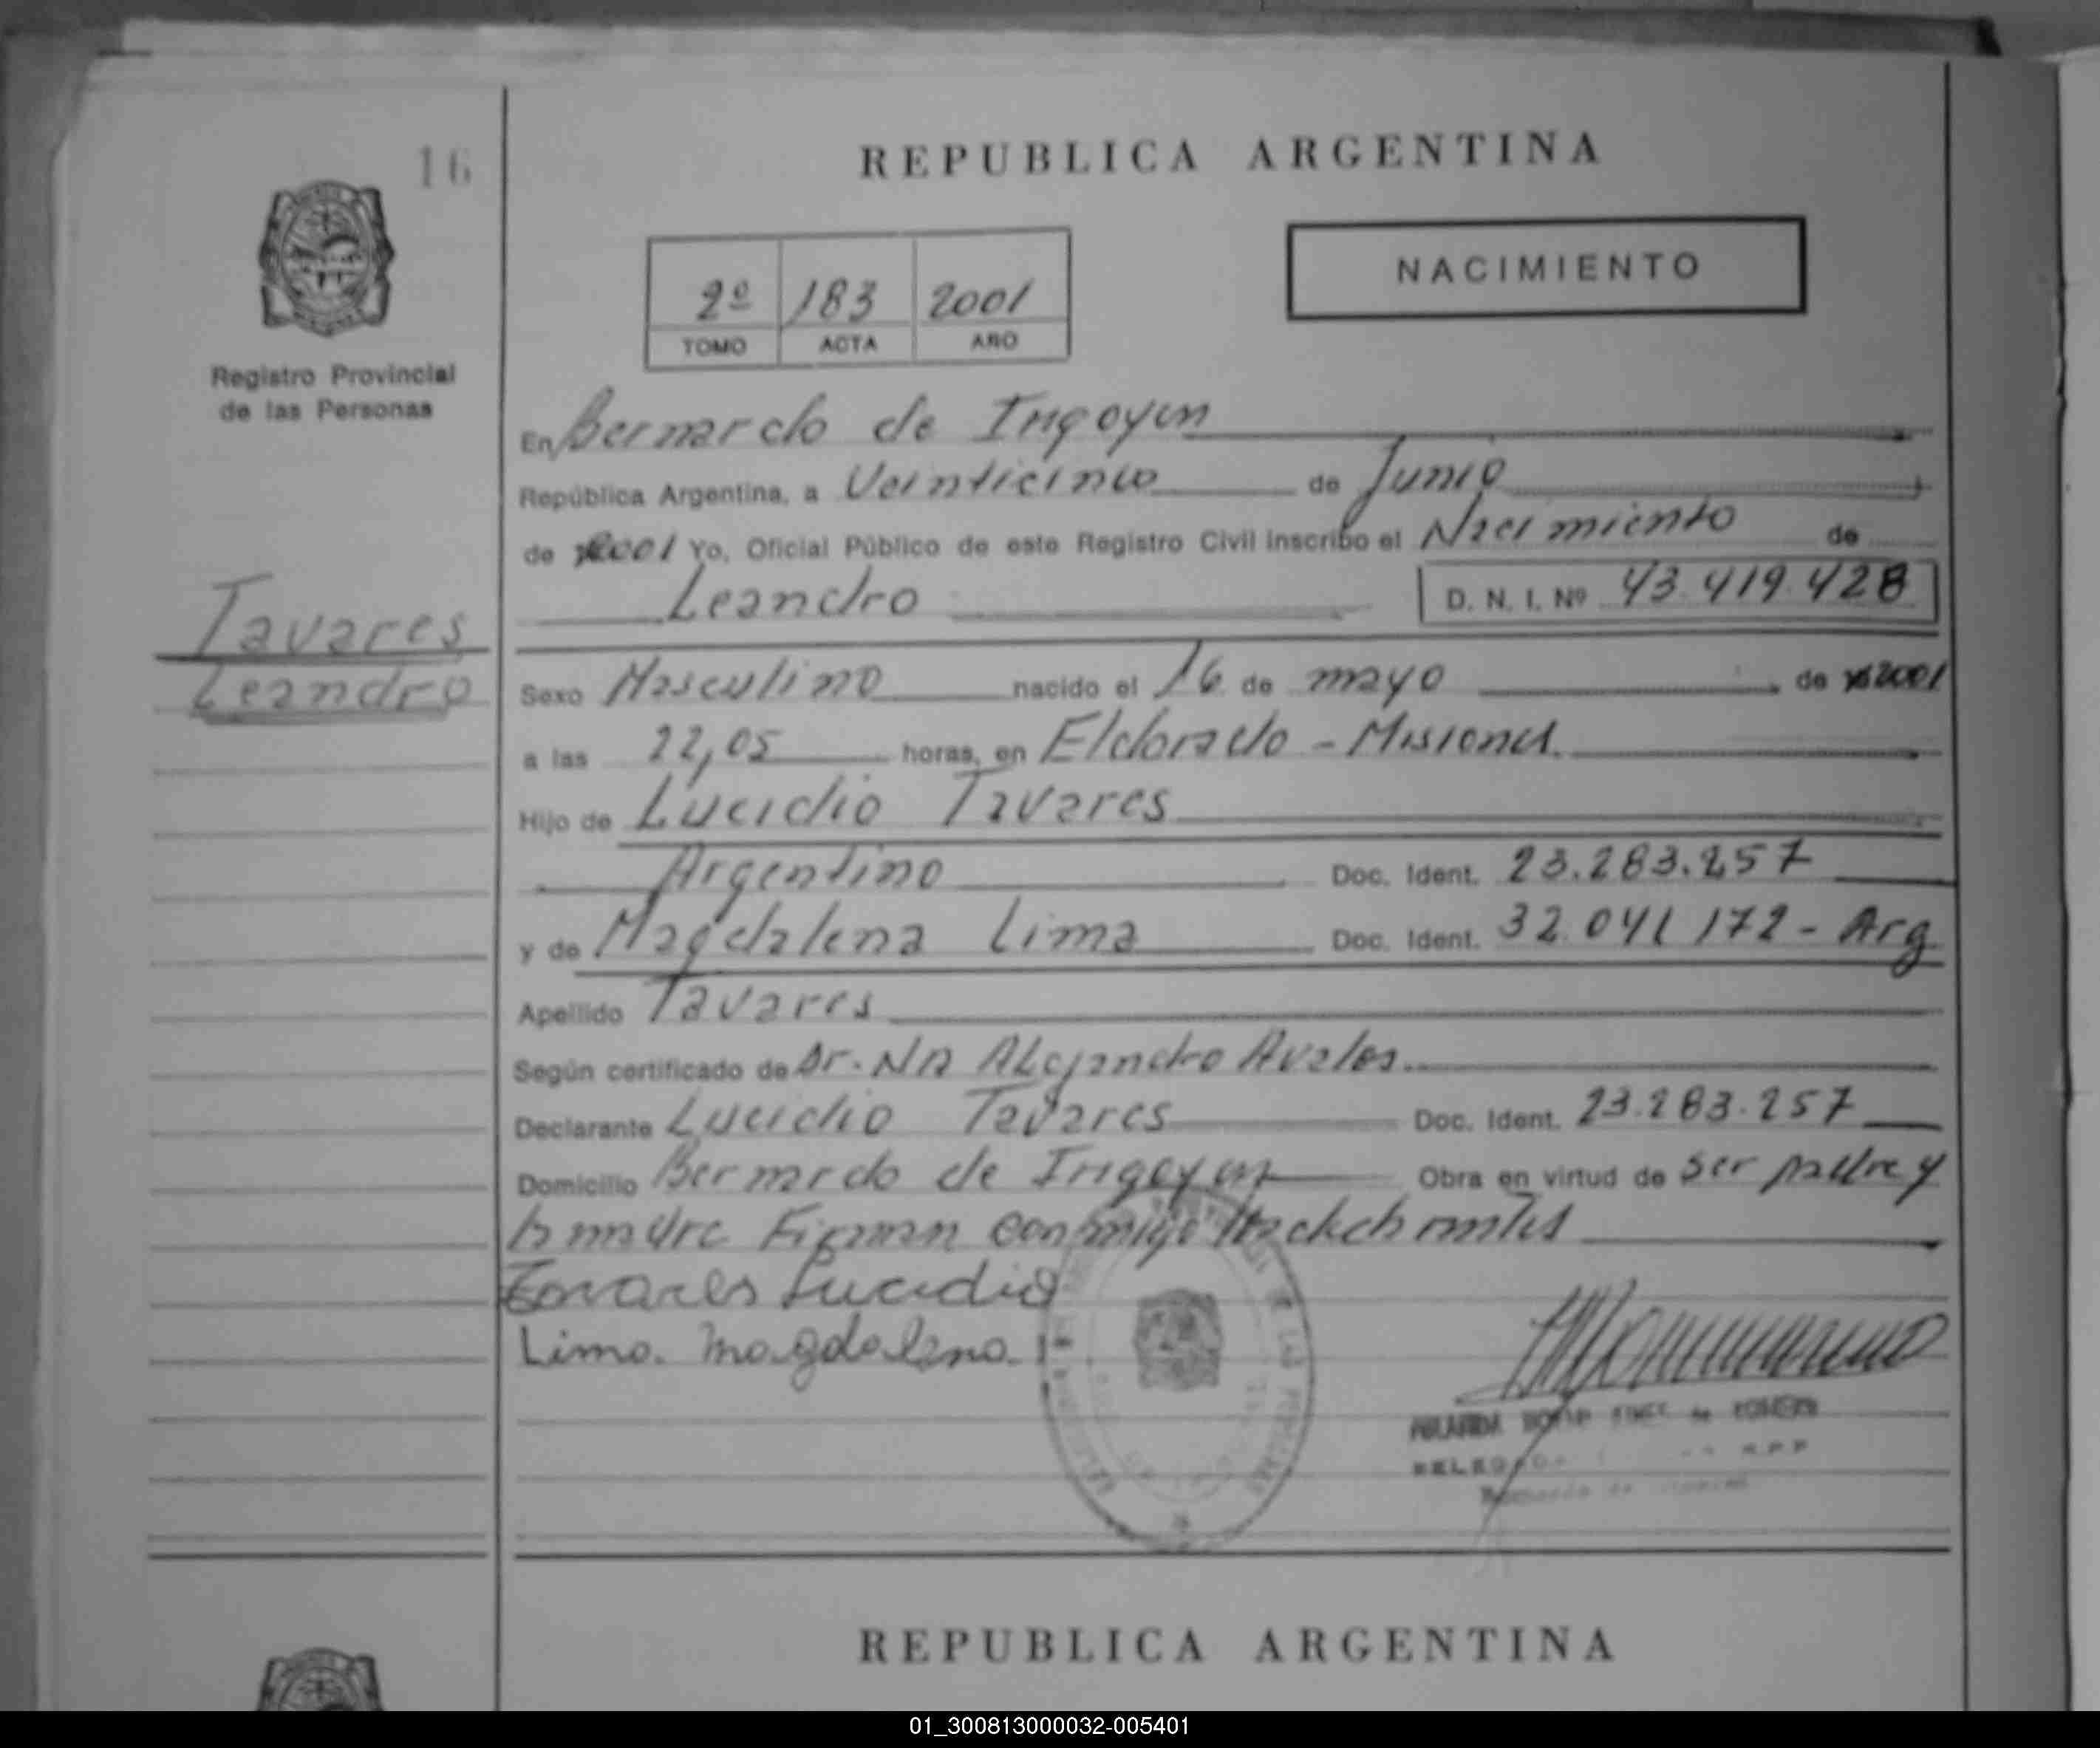 16
REPUBLICA ARGENTINA
NACIMIENTO
2º 183 2001
TOMO ACTA AÑO
Registro Provincial
de las Personas
En Bernardo de Irigoyen
República Argentina, a Veinticinco de Junio
de 2001 Yo, Oficial Público de este Registro Civil inscribo el Nacimiento de
Leandro D. N. I. Nº 43.419.428
Tavares
Leandro
Sexo Masculino nacido el 16 de mayo de 2001
a las 22,05 horas, en Eldorado - Misiones
Hijo de Lucidio Tavares
Argentino Doc. Ident. 23.283.257
y de Magdalena Lima Doc. Ident. 32.041.172 - Arg
Apellido Tavares
Según certificado de Dr. Alejandro Avalos
Declarante Lucidio Tavares Doc. Ident. 23.283.257
Domicilio Bernardo de Irigoyen Obra en virtud de ser padre y
la madre Firman conmigo
Tavares Lucidio
Lima Magdalena
REPUBLICA ARGENTINA
01_300813000032-005401